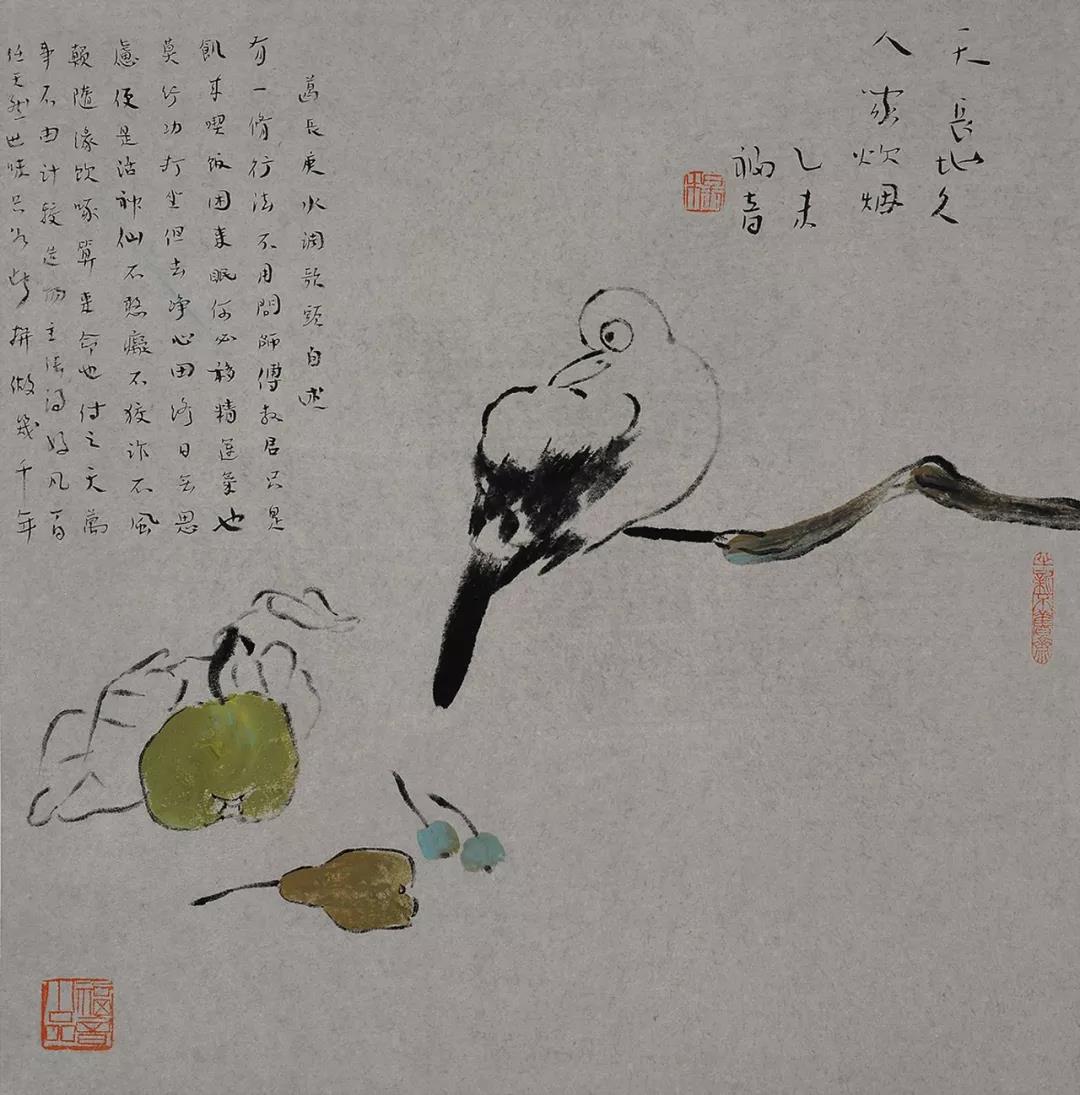 天長地久
人家炊烟
乙未
福音
葛長庚水調歌頭自述
有一脩行法不用問師傅教君只是
飢來喫飯困來眠何必移精運氣也
莫行功打坐但去淨心田終日無思
慮便是活神仙不憨癡不狡詐不風
顛隨緣飲啄算來命也付之天萬
事不由計較造物主張得好凡百
任天然世味只如此拼做幾千年
福音小品